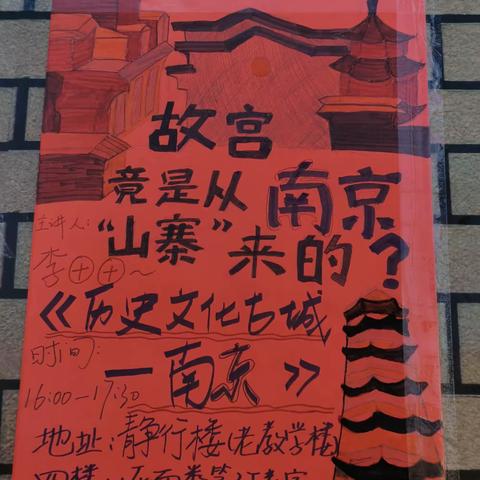 故宫
竟是从南京
"山寨"来的？
主讲人：
李⊕⊕~
《历史文化古城
—南京》
时间：
16:00—17:30
地址：静行楼(老教学楼)
四楼